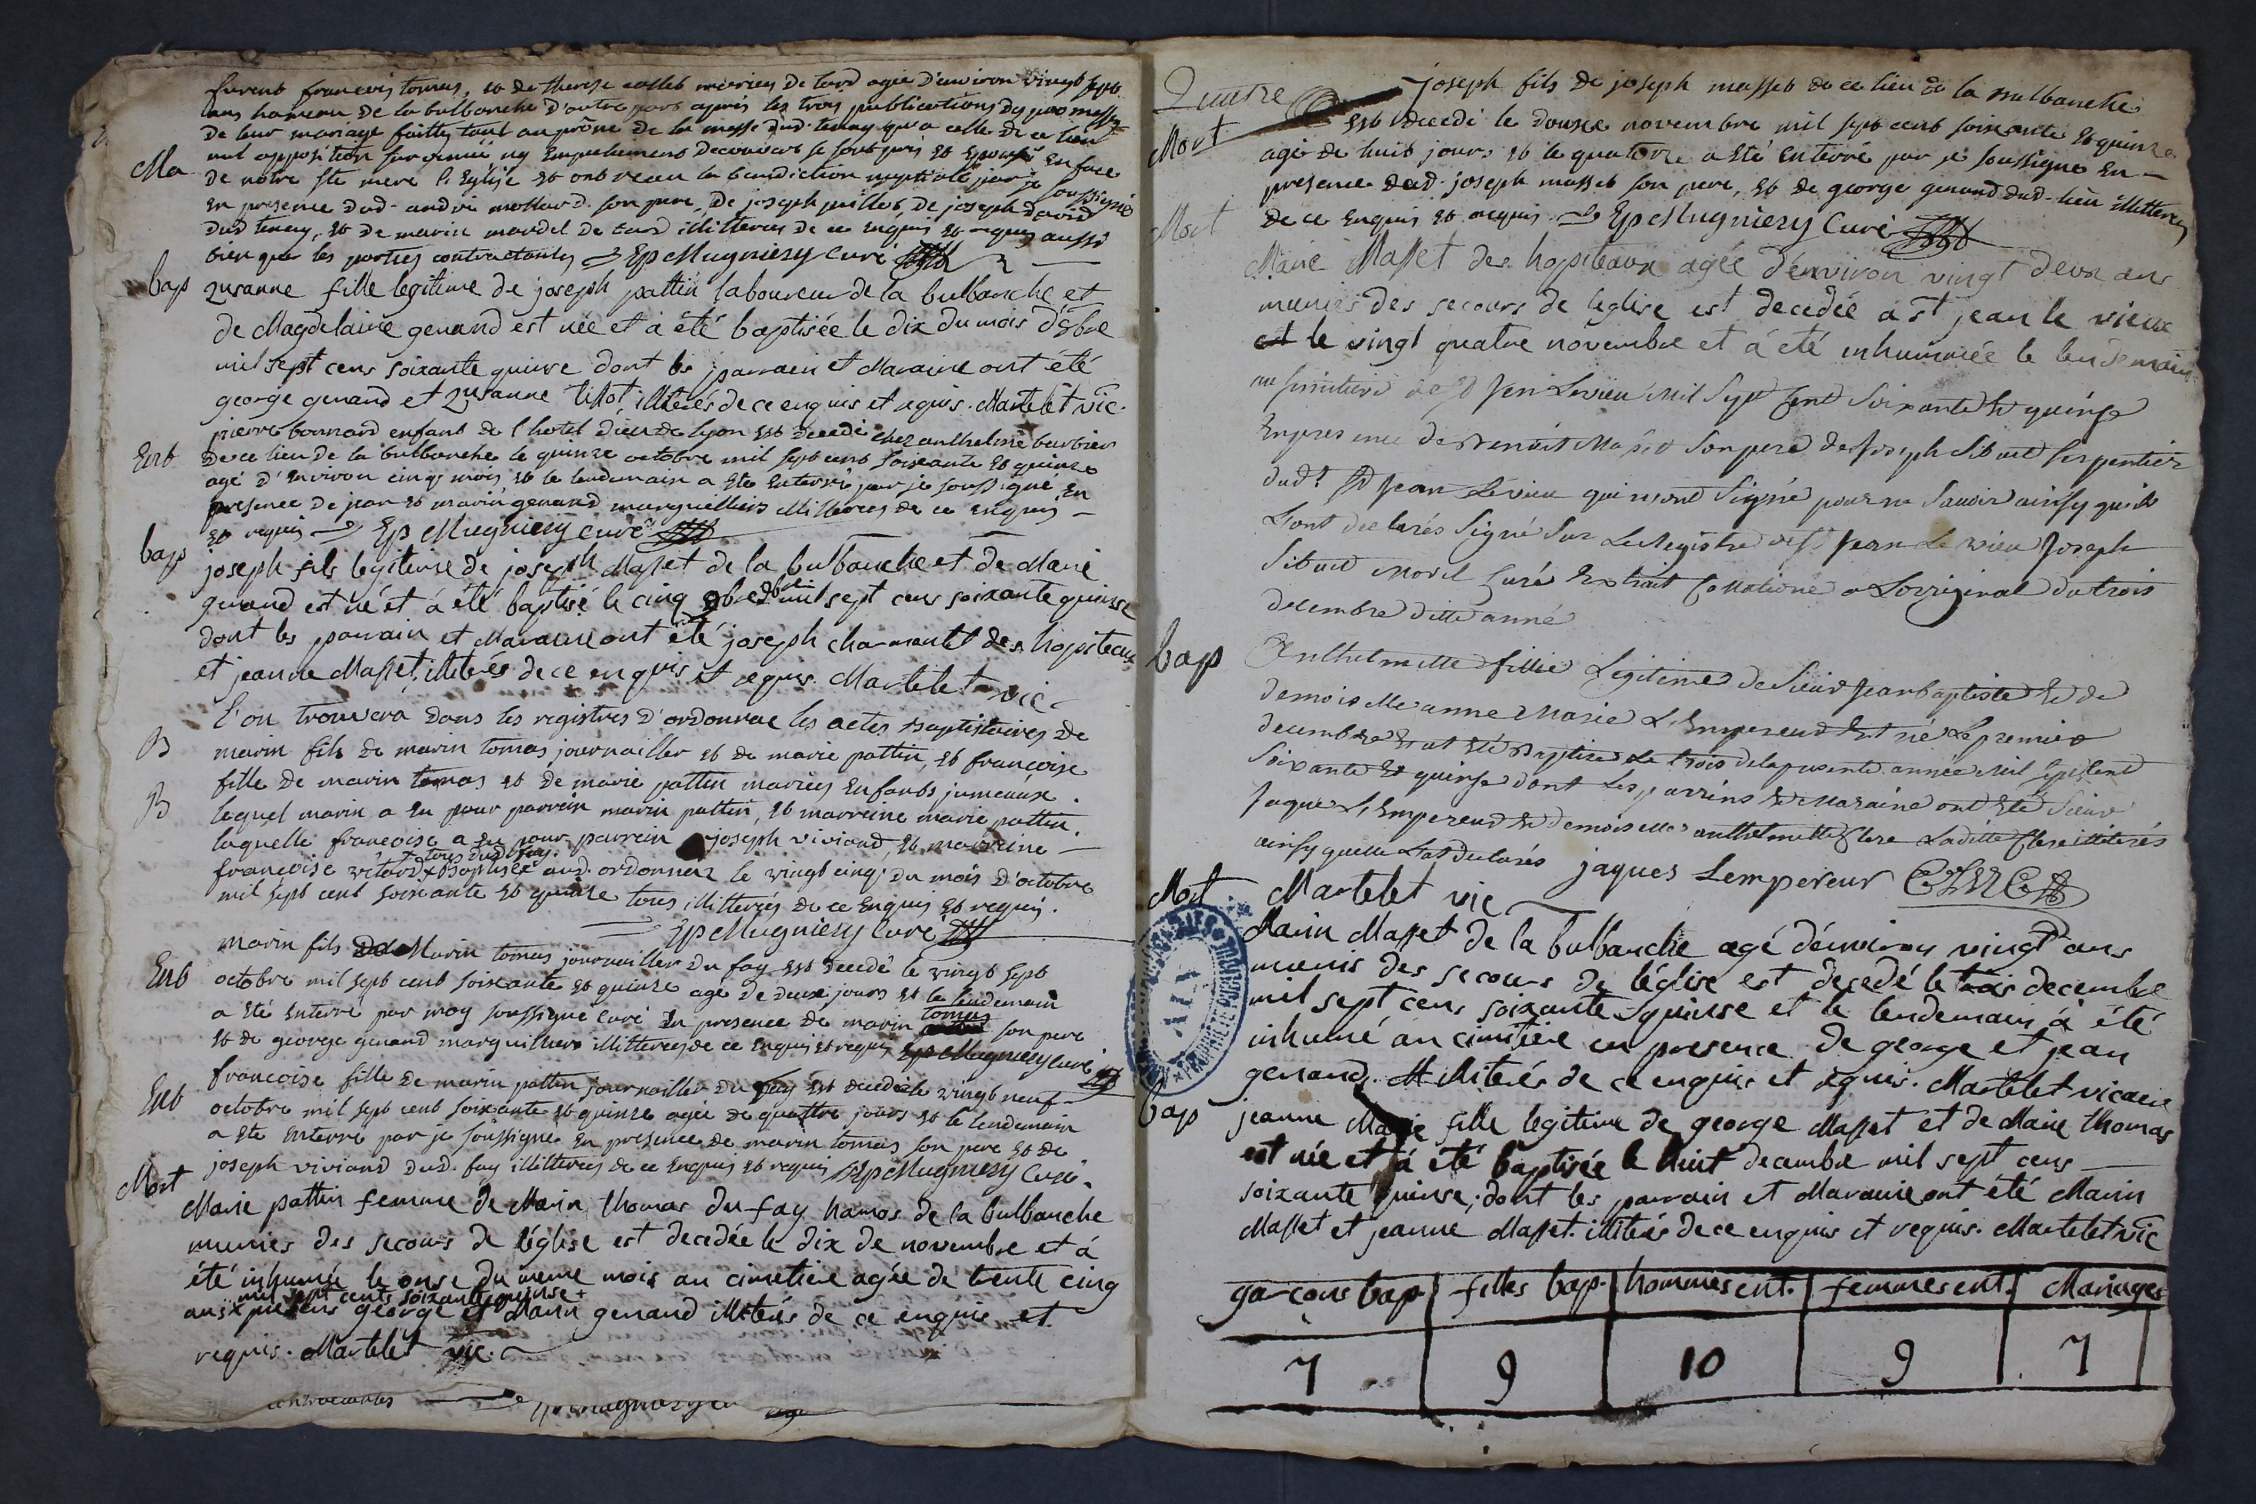 furent francois tomas, et de therese collet mariés de tard agée d'environ vingt sept
ans hameau de la bulbanche d'autre part aprés les trois publications des promesses
de leur mariage faittes tant au prône de la messe dud. tenay qu'a celle de ce lieu
nul opposition survenüe ny empechement decouvert se sont pris et epousés en face
Ma
de notre ste mere l'Eglise et ont reçu la benediction nuptiale par je soussigné
en presence dud. andré mollard son pere, de joseph juillet, de joseph david
dud tenay, et de marin mardel de tard illitterés de ce enquis et requis aussi
bien que les parties contractantes Ep Mugniery curé
bap
Zusanne fille legitime de joseph pattin laboureur de la bulbanche et
de Magdelaine genand est née et à été baptisée le dix du mois d'8bre
mil sept cens soixante quinse dont les parrain et Maraine ont été
george genand et Zusanne tissot, illiterés de ce enquis et requis. Martelet vic.
pierre bonnard enfant de l'hotel dieu de lyon est decedé chez anthelme barbier
Ent
de ce lieu de la bulbanche le quinze octobre mil sept cent soixante et quinze
agé d'environ cinq mois et le lendemain a été enterré par je soussigné en
presence de jean et marin genand marguilliers illitterés de ce enquis
et requis Ep Mugniery curé
bap
joseph fils legitime de joseph Masset de la bulbanche et de Marie
genand est né et à été baptisé le cinq 9bre mil sept cens soixante quinse
dont les parrain et Maraine ont été joseph charmantet des hopiteaux
et jeanne Masset, illiterés de ce enquis et requis. Martelet vic
l'on trouvera dans les registres d'ordonnaz les actes baptistaires de
B
marin fils de marin tomas journailler et de marie pattin, et francoise
fille de marin tomas et de marie pattin mariés enfants jumeaux.
B
lequel marin a eu pour parrain marin pattin, et marreine marie pattin.
laquelle francoise a eu pour parrain joseph viviand, et marreine
tous dud fay.
francoise baptisée aud. ordonnaz le vingt cinq du mois d'octobre
mil sept cent soixante et quinze tous illitterés de ce enquis et requis.
Ep Mugniery curé
marin fils de Marin tomas journailler du fay est decedé le vingt sept
Ent
octobre mil sept cent soixante et quinze agé de deux jours et le lendemain
a été enterré par moy soussigné curé en presence de marin tomas son pere
et de george genand marguilliers illitterés de ce enquis et requis Ep Mugniery curé
francoise fille de marin pattin journailler du fay est decedée le vingt neuf
Ent
octobre mil sept cent soixante et quinze agée de quattre jours et le lendemain
a été enterré par je soussigné en presence de marin tomas son pere et de
joseph viviand dud. fay illitterés de ce enquis et requis Ep Mugniery curé.
Mort
Marie pattin femme de Marin thomas du fay hamos de la bulbanche
munies des secours de l'église est decedée le dix de novembre et à
été inhumée le onse du meme mois au cimetiere agée de trente cinq
mil sept cents soixante quinse +
ans x presens george et Marin genand illiterés de ce enquis et
requis. Martelet vic.
joseph fils de joseph masset de ce lieu de la bulbanche
est decedé le douze novembre mil sept cent soixante et quinze
Mort
agé de huit jours et le quatorze a été enterré par je soussigné en
presence dud. joseph masset son pere, et de george genand dud. lieu illitterés
Mort
de ce enquis et requis. Ep Mugniery Curé
Marie Masset des hopiteaux agée d'environ vingt deux ans
munies des secours de l'eglise est decedée a st jean le vieux
et le vingt quatre novembre et à été inhumée le lendemain
au simitiere de st Jean Levieu mil sept cent soixante et quinse
en presence de Benoit Masset son pere de Joseph Sibuet serpentier
dudt st Jean Levieu qui n'ont signé pour ne savoir ainsy quils
l'ont declarés signé sur le registre de st Jean Le vieu Joseph
Sibuet morel curé Extrait collationé a l'orriginal du trois
decembre ditte anné
bap
Anthelmette fillie Legitime de Sieur Jean baptiste et de
demoiselle anne Marie L'Empereur est né le premier
decembre et at été Baptisé le trois de la presente année mil sept cent
soixante et quinse dont les parrins et Maraine ont été Sieur
Jaque L'Empereur et demoiselle anthelmette Clere Laditte Clere illiterés
ainsy quelle l'at declarés jaques Lempereur
Mort
Martelet vic
Marin Masset de la bulbanche agé d'environ vingt ans
munis des secours de l'église est decedé le trois decembre
mil sept cens soixante quinse et le lendemain à été
inhumé au cimetiere en presence de george et jean
genand. illiterés de ce enquis et requis. Martelet vicaire
bap
jeanne Marie fille legitime de george Masset et de Marie thomas
est née et à été baptisée le huit decembre mil sept cens
soixante quinse, dont les parrain et Maraine ont été Marin
Masset et jeanne Masset. illiterés de ce enquis et requis. Martelet vic
garcons bap. filles bap. hommes ent. femmes ent. Mariages
7 9 10 9 7